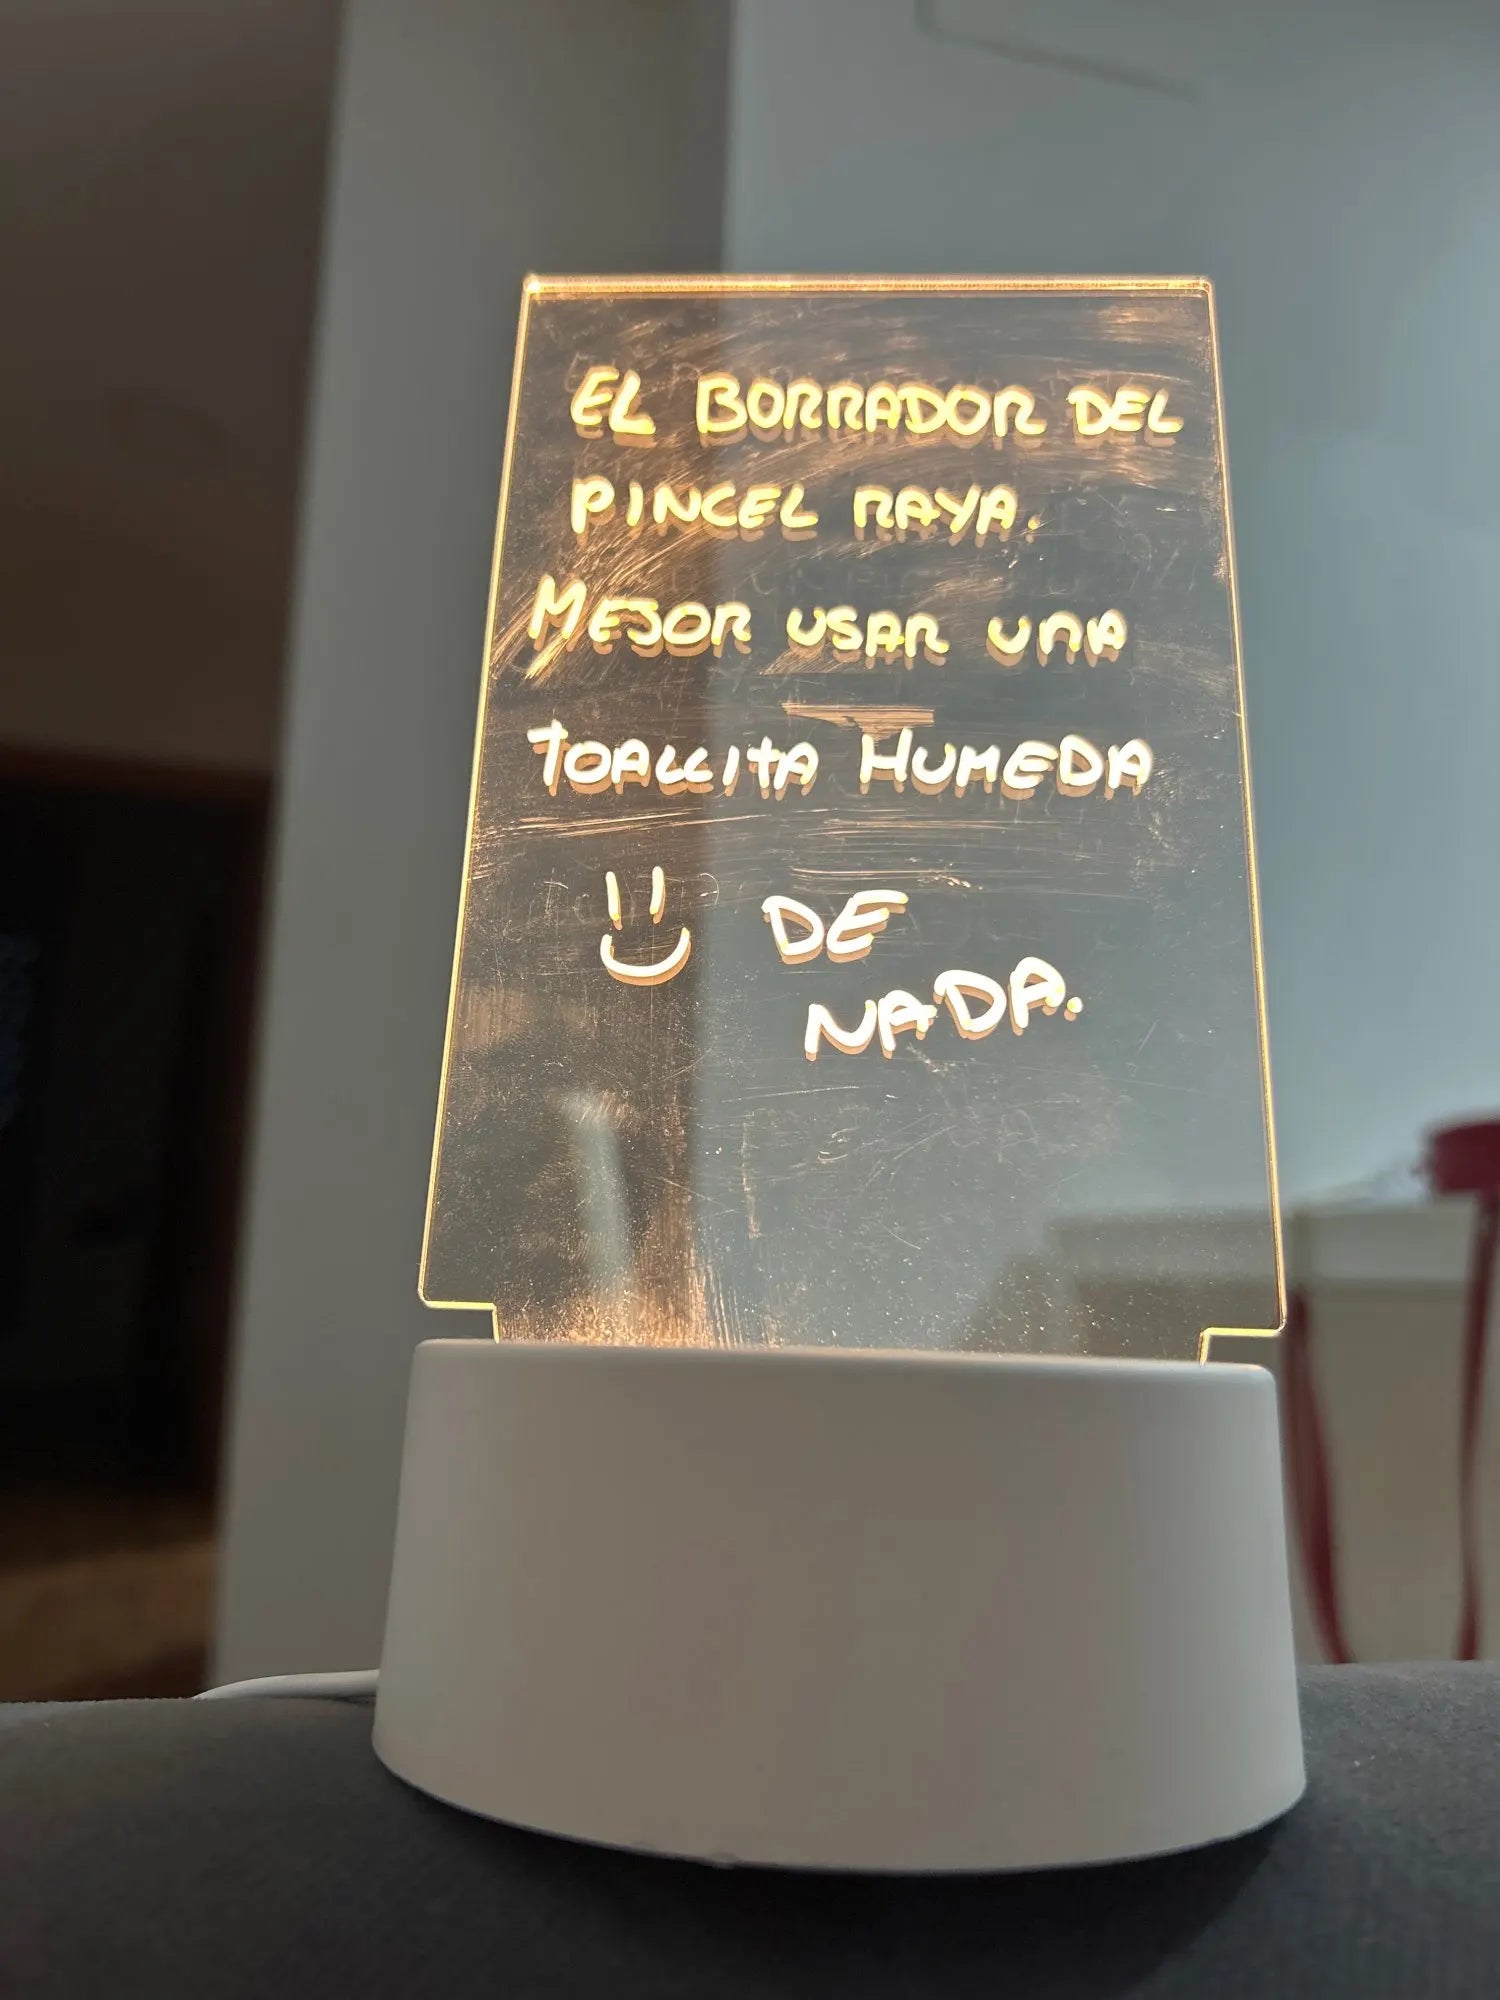 EL BORRADOR DEL
PINCEL RAYA.
MEJOR USAR UNA
TOALLITA HUMEDA
DE
NADA.